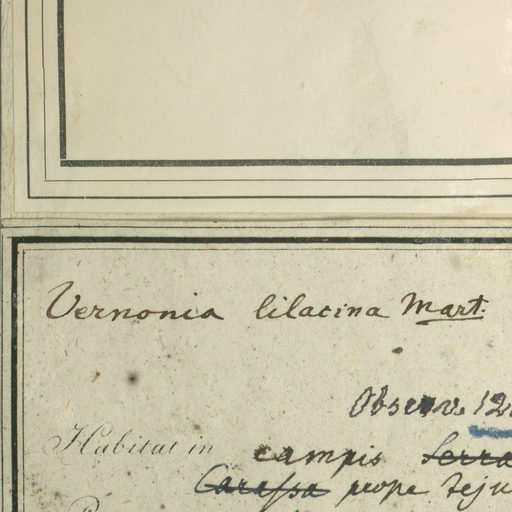 Vernonia lilacina Mart.
Observ. 12
Habitat in campis Serra
Carassa prope Teju